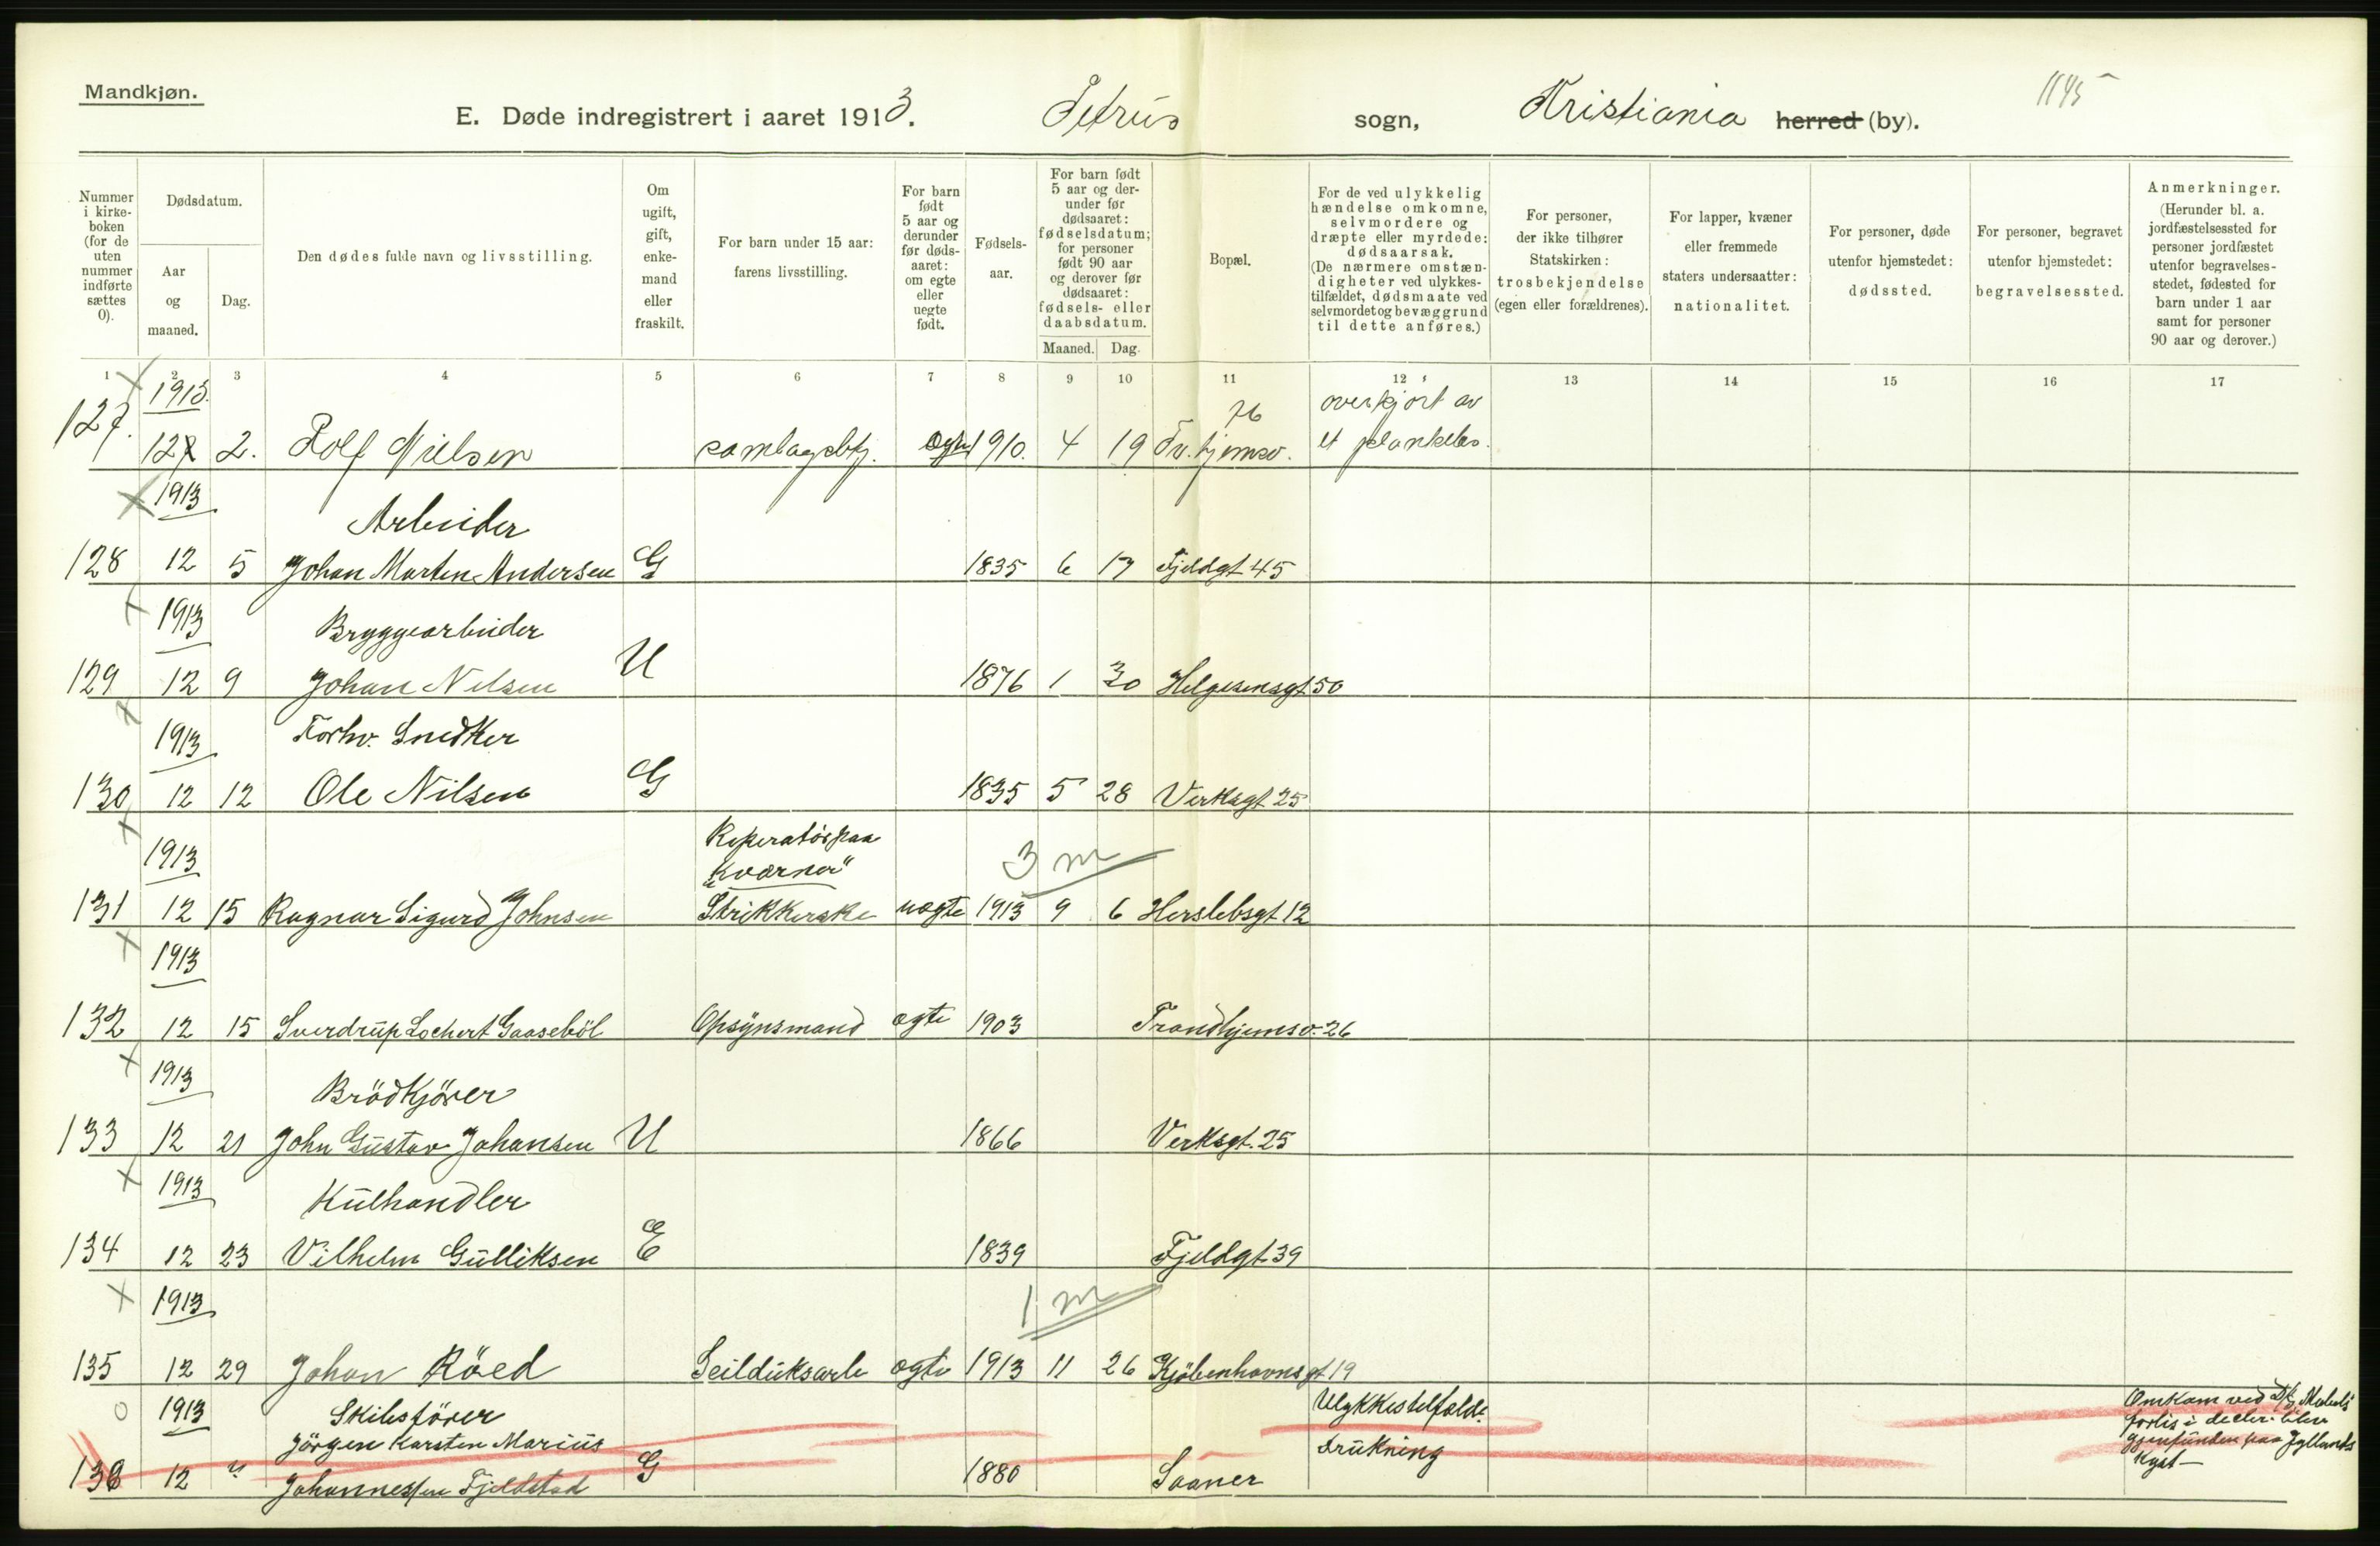 Mandkjøn.
E. Døde indregistrert i aaret 1913. Petrus sogn, Kristiania herred (by).
1145
Nummer i kirkeboken (for de uten nummer indførte sættes 0).
Dødsdatum.
Aar og maaned.
Dag.
Den dødes fulde navn og livsstilling.
Om ugift, gift, enkemand eller fraskilt.
For barn under 15 aar: farens livsstilling.
For barn født 5 aar og derunder før dødsaaret: om egte eller uegte født.
Fødselsaar.
For barn født 5 aar og derunder før dødsaaret: fødselsdatum; for personer født 90 aar og derover før dødsaaret: fødsels- eller daabsdatum.
Maaned. Dag.
Bopæl.
For de ved ulykkelig hændelse omkomne, selvmordere og dræpte eller myrdede: dødsaarsak. (De nærmere omstændigheter ved ulykkestilfældet, dødsmaate ved selvmordet og bevæggrund til dette anføres.)
For personer, der ikke tilhører Statskirken: trosbekjendelse (egen eller forældrenes).
For lapper, kvæner eller fremmede staters undersaatter: nationalitet.
For personer, døde utenfor hjemstedet: dødssted.
For personer, begravet utenfor hjemstedet: begravelsessted.
Anmerkninger. (Herunder bl. a. jordfæstelsessted for personer jordfæstet utenfor begravelsesstedet, fødested for barn under 1 aar samt for personer 90 aar og derover.)
1 2 3 4 5 6 7 8 9 10 11 12 13 14 15 16 17
1913. 76 overkjört av
127. 12 2. Rolf Nielsen samlagsbtj. egte 1910. 4 19 Tr.hjemsv. et plankelas.
1913 Arbeider
128 12 5 Johan Marten Andersen G 1835 6 17 Fjeldgt 45
1913 Bryggearbeider
129 12 9 Johan Nilsen U 1876 1 30 Helgesensgt 50
1913 Forhv. Snedker
130 12 12 Ole Nilsen G 1835 5 28 Verksgt 25
1913 Reperatör paa
"Kværner" 3 m
131 12 15 Ragnar Sigurd Johnsen Strikkerske uegte 1913 9 6 Herslebsgt 12
1913
132 12 15 Sverdrup Lochert Gaaseböl Opsynsmand egte 1903 Trondhjemsv. 26
1913 Brödkjörer
133 12 21 John Gustav Johansen U 1866 Verksgt. 25
1913 Kulhandler
134 12 23 Vilhelm Gulliksen E 1839 Fjeldgt 39
1913 1 m
135 12 29 Johan Röed Seilduksarb egte 1913 11 26 Kjöbenhavnsgt 19
0 1913 Skibsförer Ulykkestilfælde Omkom ved
Jörgen Karsten Marius drukning forlis i decbr. blev
gjenfunden paa Jyllands
136 12 " Johannessen Fjeldstad G 1880 Saaner Kyst —